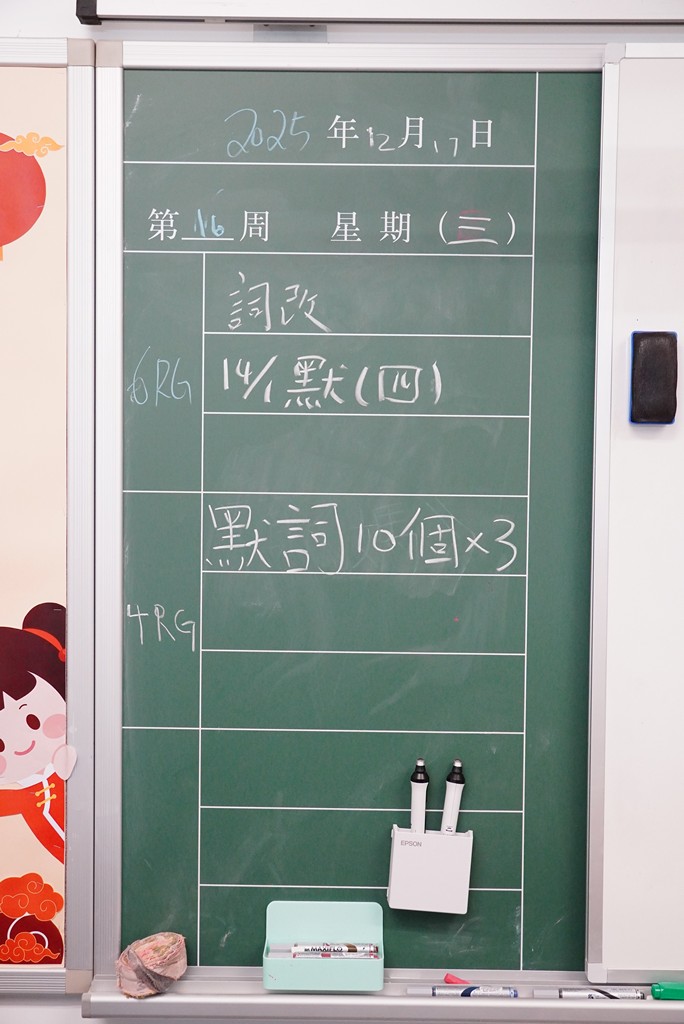 2025 年 12 月 17 日
第 16 周 星期 (三)
6RG
詞改
14/1 默(四)
4RG
默詞10個×3
EPSON
MAXIFLO